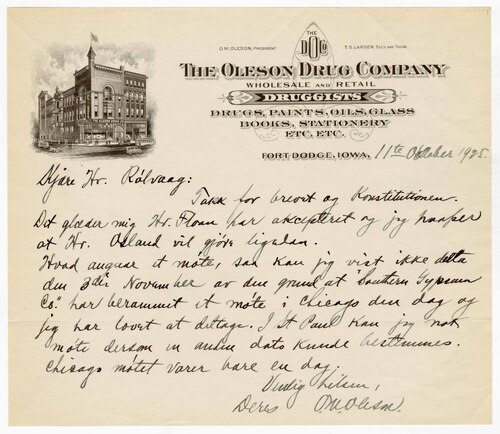 O.M. OLESON, PRESIDENT
T.S. LARSEN, SECY AND TREAS.
THE
D Co
THE OLESON DRUG COMPANY
WHOLESALE AND RETAIL
DRUGGISTS
DRUGS, PAINTS, OILS, GLASS
BOOKS, STATIONERY
ETC. ETC.
FORT DODGE, IOWA, 11te Oktober 1925.
Kjære Hr. Rölvaag:
Takk for brevit og Konstitutionen.
Det glæder mig Hr. Floan har akcepteret og jeg haaper
at Hr. Osland vil gjöre ligedan.
Hvad angaar et möte, saa kan jeg vist ikke delta
den 3die November av den grund at "Southern Gypsum
Co." har berammet et möte i Chicago den dag og
jeg har lovet at deltage. I St Paul kan jeg nok
möte dersom en anden dato kunde bestemmes.
Chicago mötet varer bare en dag.
Venlig hilsen,
Deres O.M. Oleson.